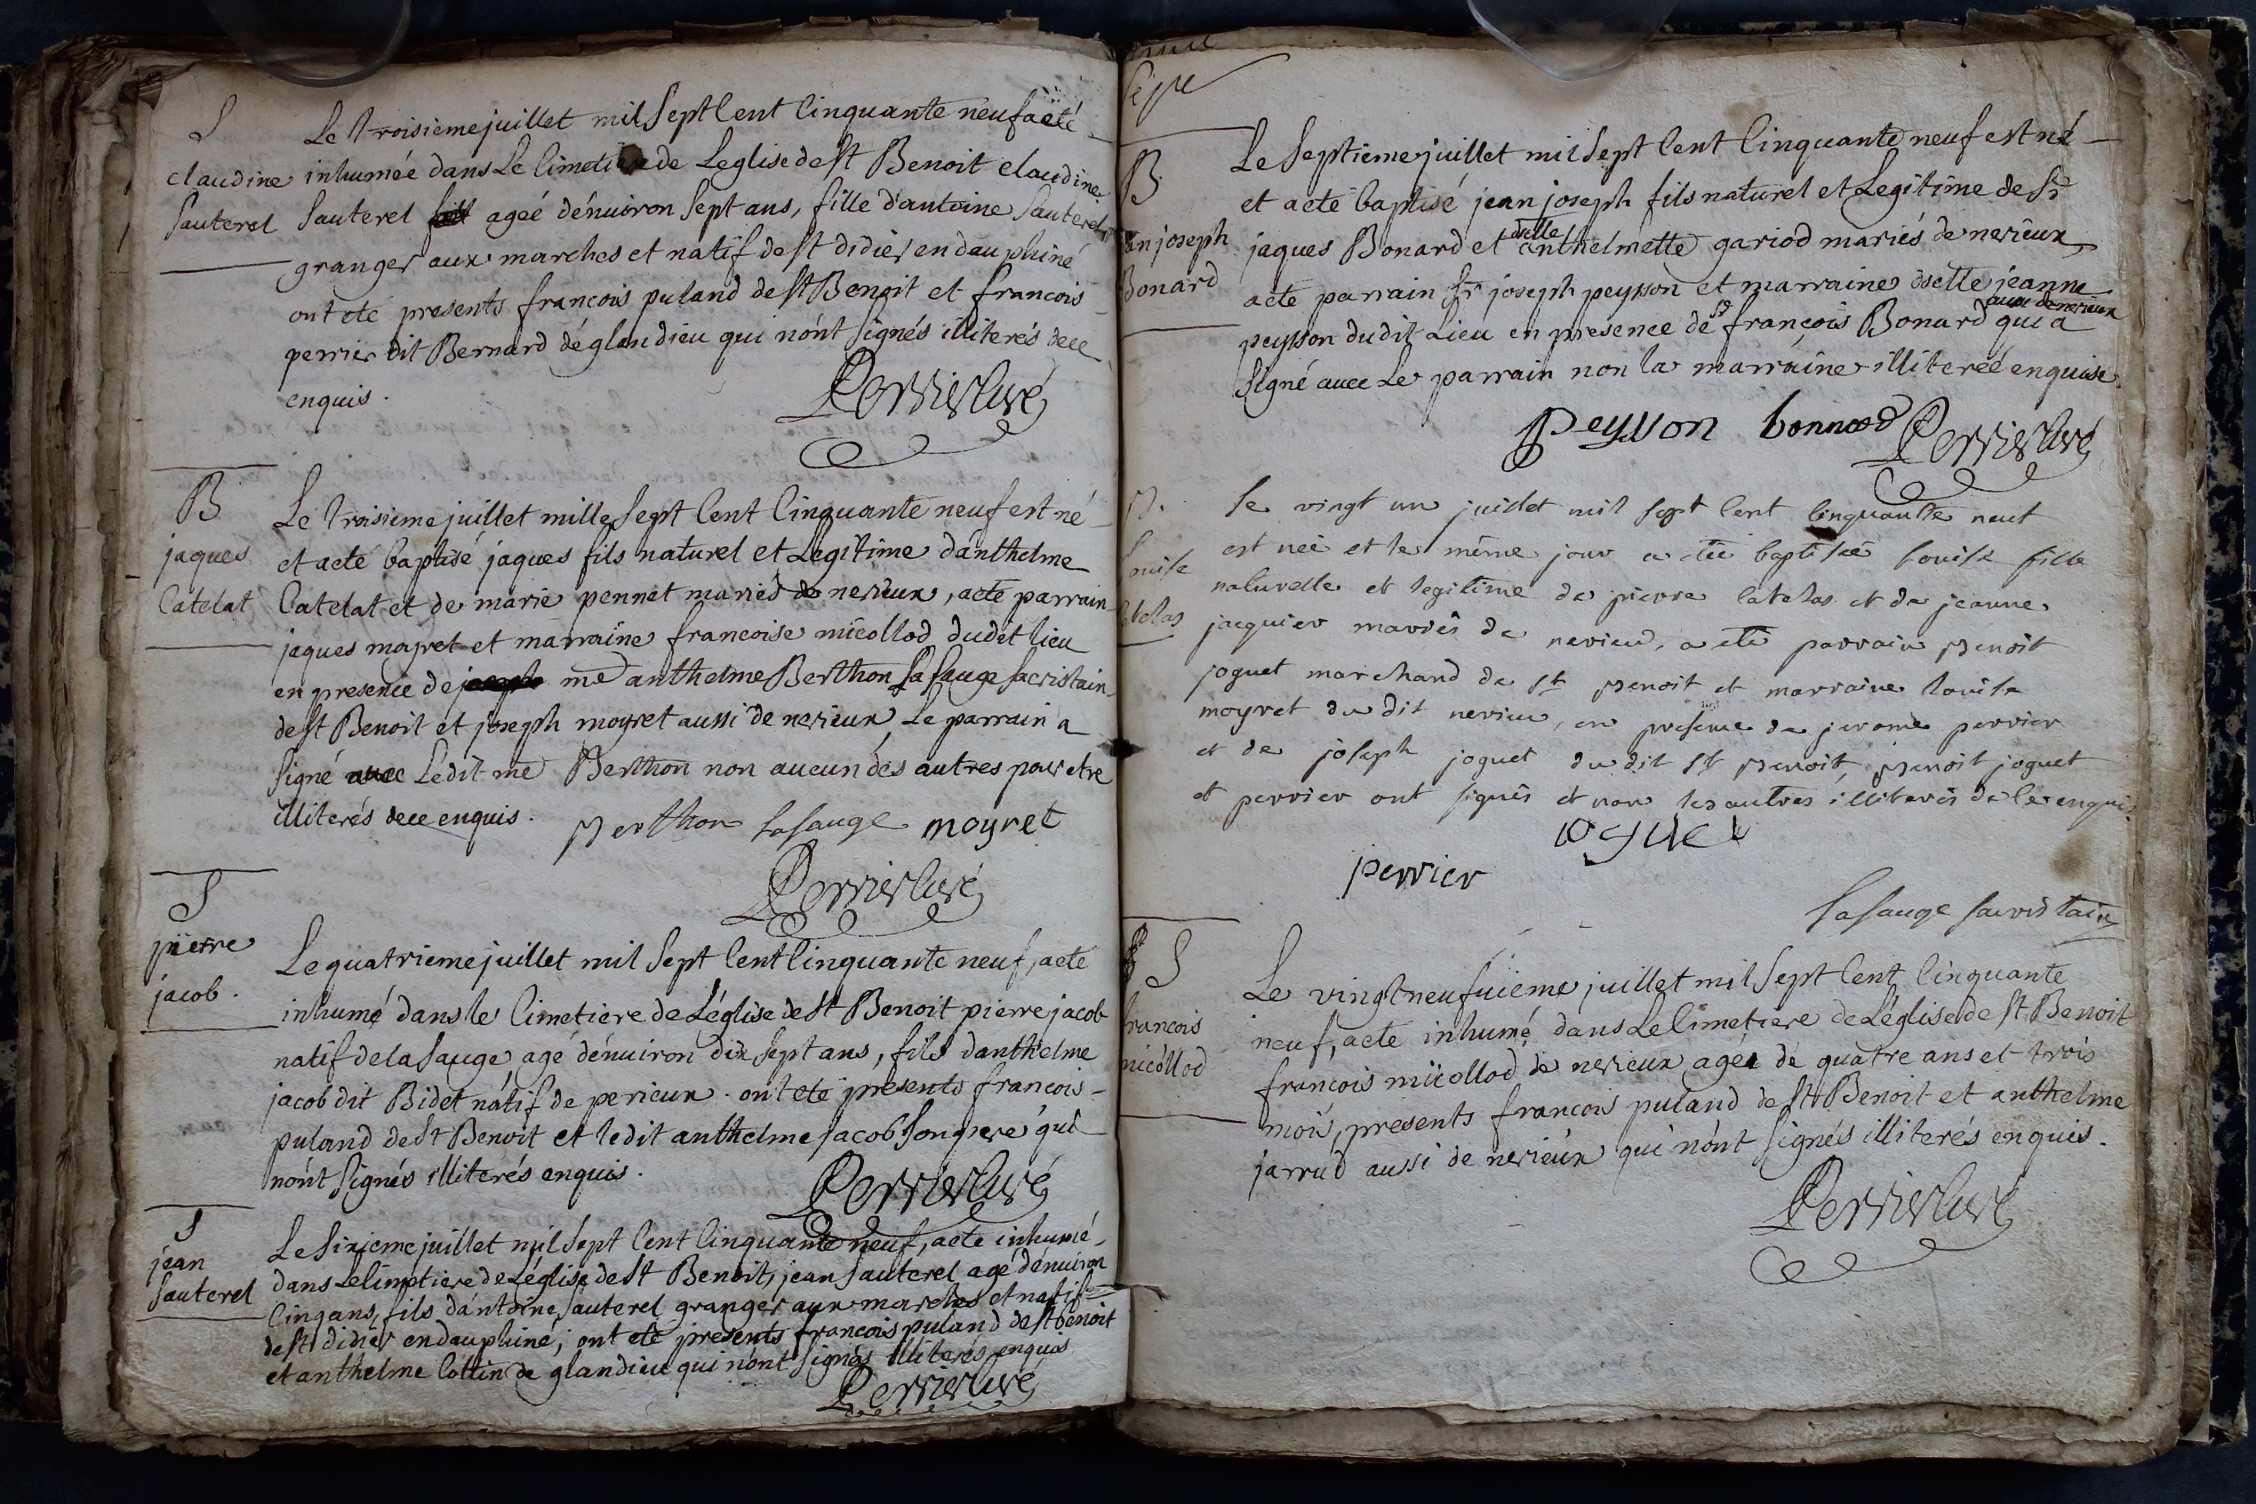 S
Le troisieme juillet mil Sept Cent Cinquante neuf a eté
claudine inhumée dans Le Cimetiere de Leglise de st Benoit claudine
Sauterel Sauterel ageé dénuiron Sept ans, fille d'antoine Sauterel
granger aux marches et natif de st didier en dauphiné
ont ete presents francois puland de st Benoit et francois
perrier dit Bernard déglandieu qui nónt signés illiterés dece
enquis.
Perrier Curé
B
jaques
Catelat
Le troisieme juillet mille Sept Cent Cinquante neuf est né
et a eté baptisé jaques fils naturel et Legitime dánthelme
Catelat et de marie pennet mariés de nerieux, a eté parrain
jaques moyret et marraine francoise micollod dudit lieu
en presence de me anthelme Berthon La Sauge Sacristain
de st Benoit et joseph moyret aussi de nerieux, Le parrain a
signé avec Ledit me Berthon non aucun des autres pour etre
illiterés dece enquis.
Berthon Lasauge moyret
Perrier Curé
S
pierre
jacob.
Le quatrieme juillet mil Sept Cent Cinquante neuf, a eté
inhumé dans le Cimetiere de Léglise de st Benoit pierre jacob
natif de la Sauge, agé dénuiron dix sept ans, fils danthelme
jacob dit Bidet nátif de perieux. ont ete presents francois
puland de st Benoit et ledit anthelme jacob Son pere qui
nónt signés illiterés enquis.
Perrier Curé
S
jean
Sauterel
Le Sixieme juillet mil Sept Cent Cinquante neuf, a eté inhumé
dans Le Cimetiere de Léglise de st Benoit, jean Sauterel agé dénuiron
Cinq ans, fils dántoine Sauterel granger aux marches et natif
de st didier en dauphiné; ont eté presents francois puland de st benoit
et anthelme Cottin de glandieu qui nónt signés illiterés enquis
Perrier Curé
B
an joseph
Bonard
Le Septieme juillet mil Sept Cent Cinquante neuf est né
et a eté baptisé jean joseph fils naturel et Legitime de Sr
jaques Bonard et dselle anthelmette gariod mariés de nerieux,
a eté parrain Sr joseph peysson et marraine dselle jeanne
peysson dudit Lieu en presence de Sr francois Bonard aussi de nerieux qui a
Signé avec Le parrain non la marraine illitereé enquise.
Peysson bonnard Perrier Curé
B.
Louise
Catelas
le vingt un juillet mil sept Cent Cinquante neuf
est neé et le même jour a eté baptiseé Louise fille
naturelle et legitime de pierre Catelas et de jeanne
jacquier mariés de nerieu, a eté parrain Benoit
joguet marchand de st Benoit et marraine Louise
moyret du dit nerieu, en presence de jerome perrier
et de joseph joguet du dit st Benoit, Benoit joguet
et perrier ont signés et non les autres illiterés de Ce enquis
perrier
Lasauge sacristain
S
francois
micollod
Le vingt neufuième juillet mil Sept Cent Cinquante
neuf, a eté inhumé dans Le Cimetiere de Léglise de st Benoit
francois micollod de nerieux agé de quatre ans et trois
mois, presents francois puland de st Benoit et anthelme
jarrud aussi de nerieux qui nónt signés illiterés enquis.
Perrier Curé